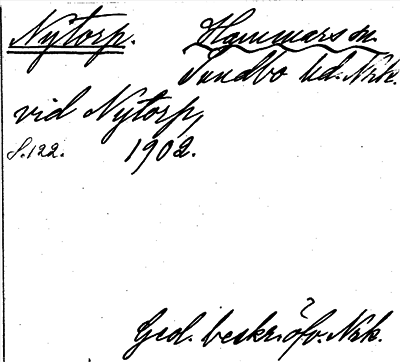 Nytorp. Hammars sn.
Sundbo hd. Nrk.
vid Nytorp,
S.122. 1902.
Geol. beskr. öfv. Nrk.